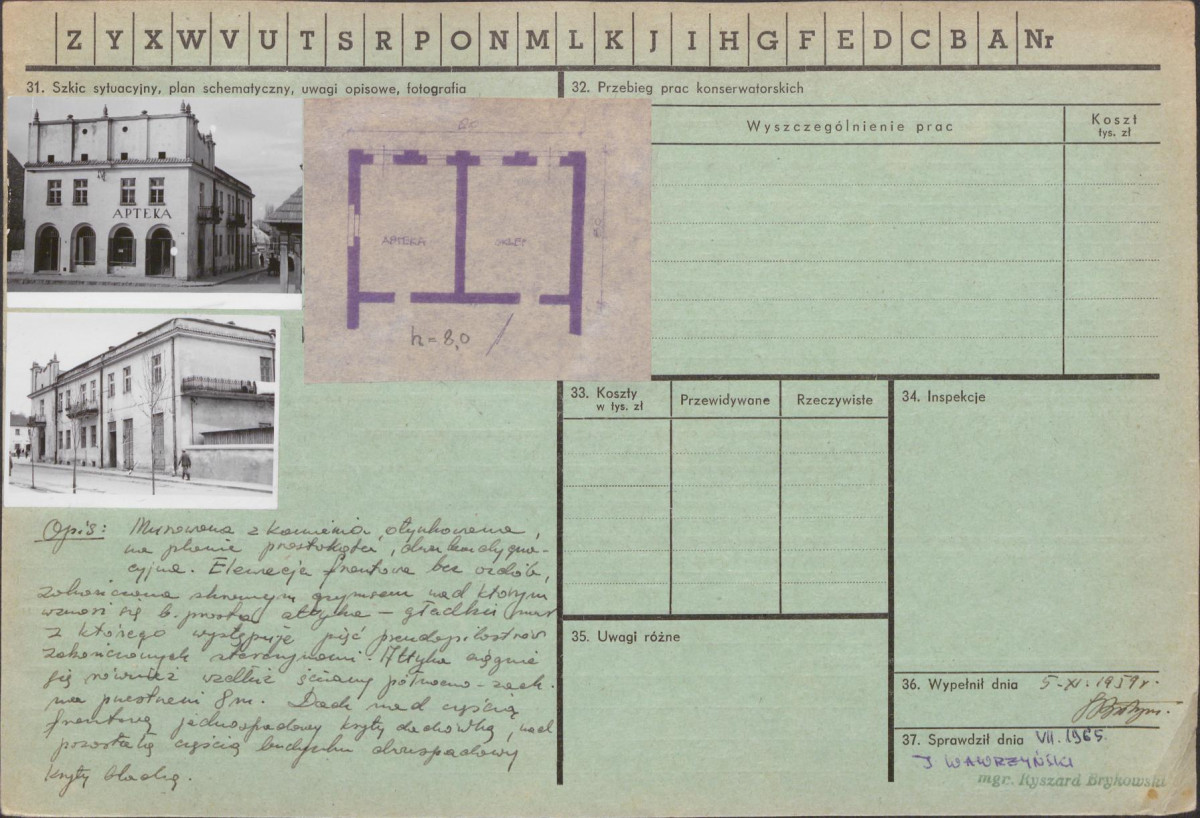 Z Y X W V U T S R P O N M L K J I H G F E D C B A Nr
31. Szkic sytuacyjny, plan schematyczny, uwagi opisowe, fotografia
APTEKA
APTEKA SKLEP
h = 8,0
Opis: Murowana z kamienia, otynkowana,
na planie prostokąta, dwukondygna-
cyjna. Elewacja frontowa bez ozdób,
zakończona skromnym gzymsem nad którym
wznosi się b. prosta attyka – gładki mur
z którego występuje pięć pseudopilastrów
zakończonych sterczynami. Attyka ciągnie
się również wzdłuż ściany północno-zach.
na przestrzeni 8 m. Dach nad częścią
frontową jednospadowy kryty dachówką, nad
pozostałą częścią budynku dwuspadowy
kryty blachą.
32. Przebieg prac konserwatorskich
Wyszczególnienie prac
Koszt
tys. zł
33. Koszty
w tys. zł
Przewidywane
Rzeczywiste
34. Inspekcje
35. Uwagi różne
36. Wypełnił dnia 5-XI.1959r.
37. Sprawdził dnia VII.1965
J WAWRZYŃSKI
mgr. Ryszard Brykowski